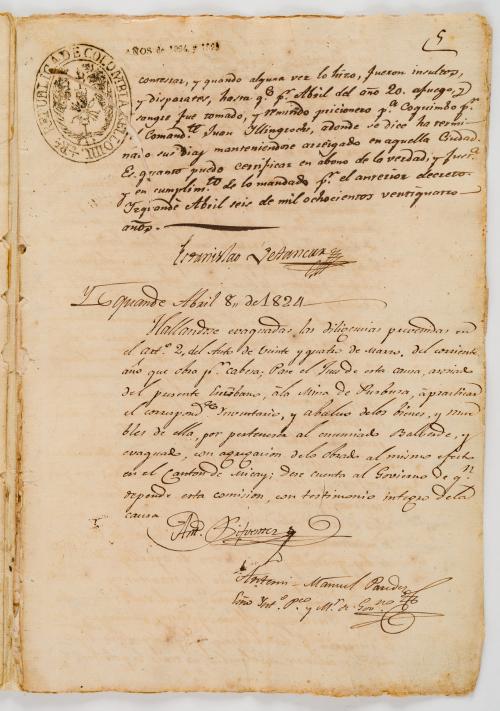 5
REPUBLICA DE COLOMBIA SELLO
AÑOS de 1824, y 1825
contestar, y quando alguna vez lo hizo, fueron insultos,
y disparates, hasta q.e p.r Abril del año 20. a fuego, y
sangre fue tomado, y remitido pricionero p.a Coquimbo p.r
Comand.te Juan Illingrochs, adonde se dice ha termi-
nado sus dias manteniendose arreigado en aquella Ciudad.
Es quanto puedo certificar en abono de la verdad, y
y en cumplim.to de lo mandado p.r el anterior decreto
Yzquande Abril seis de mil ochocientos veintiquatro
años.
Estanislao Betancur
Yzquande Abril 8,, de 1824
Hallandose evaquadas las diligencias prevenidas en
el art.o 2, del Auto de veinte y quatro de Marzo, del corriente
año que obra p.r cabeza; Pase el Jues de esta causa,
del presente Escribano, à la Mina de à practicar
el correspond.te Inventario, y abaluo de los bienes, y mue
bles de ella, por pertenecer al enunciad Ballende, y
evaquad, con agregacion de lo obrad al mismo efecto
en el Canton de Micay; dese cuenta al Govierno de q.n
depende esta comision, con testimonio integro de la
causa
Ant.
Antemi Manuel Paredes
Int.o p.co y